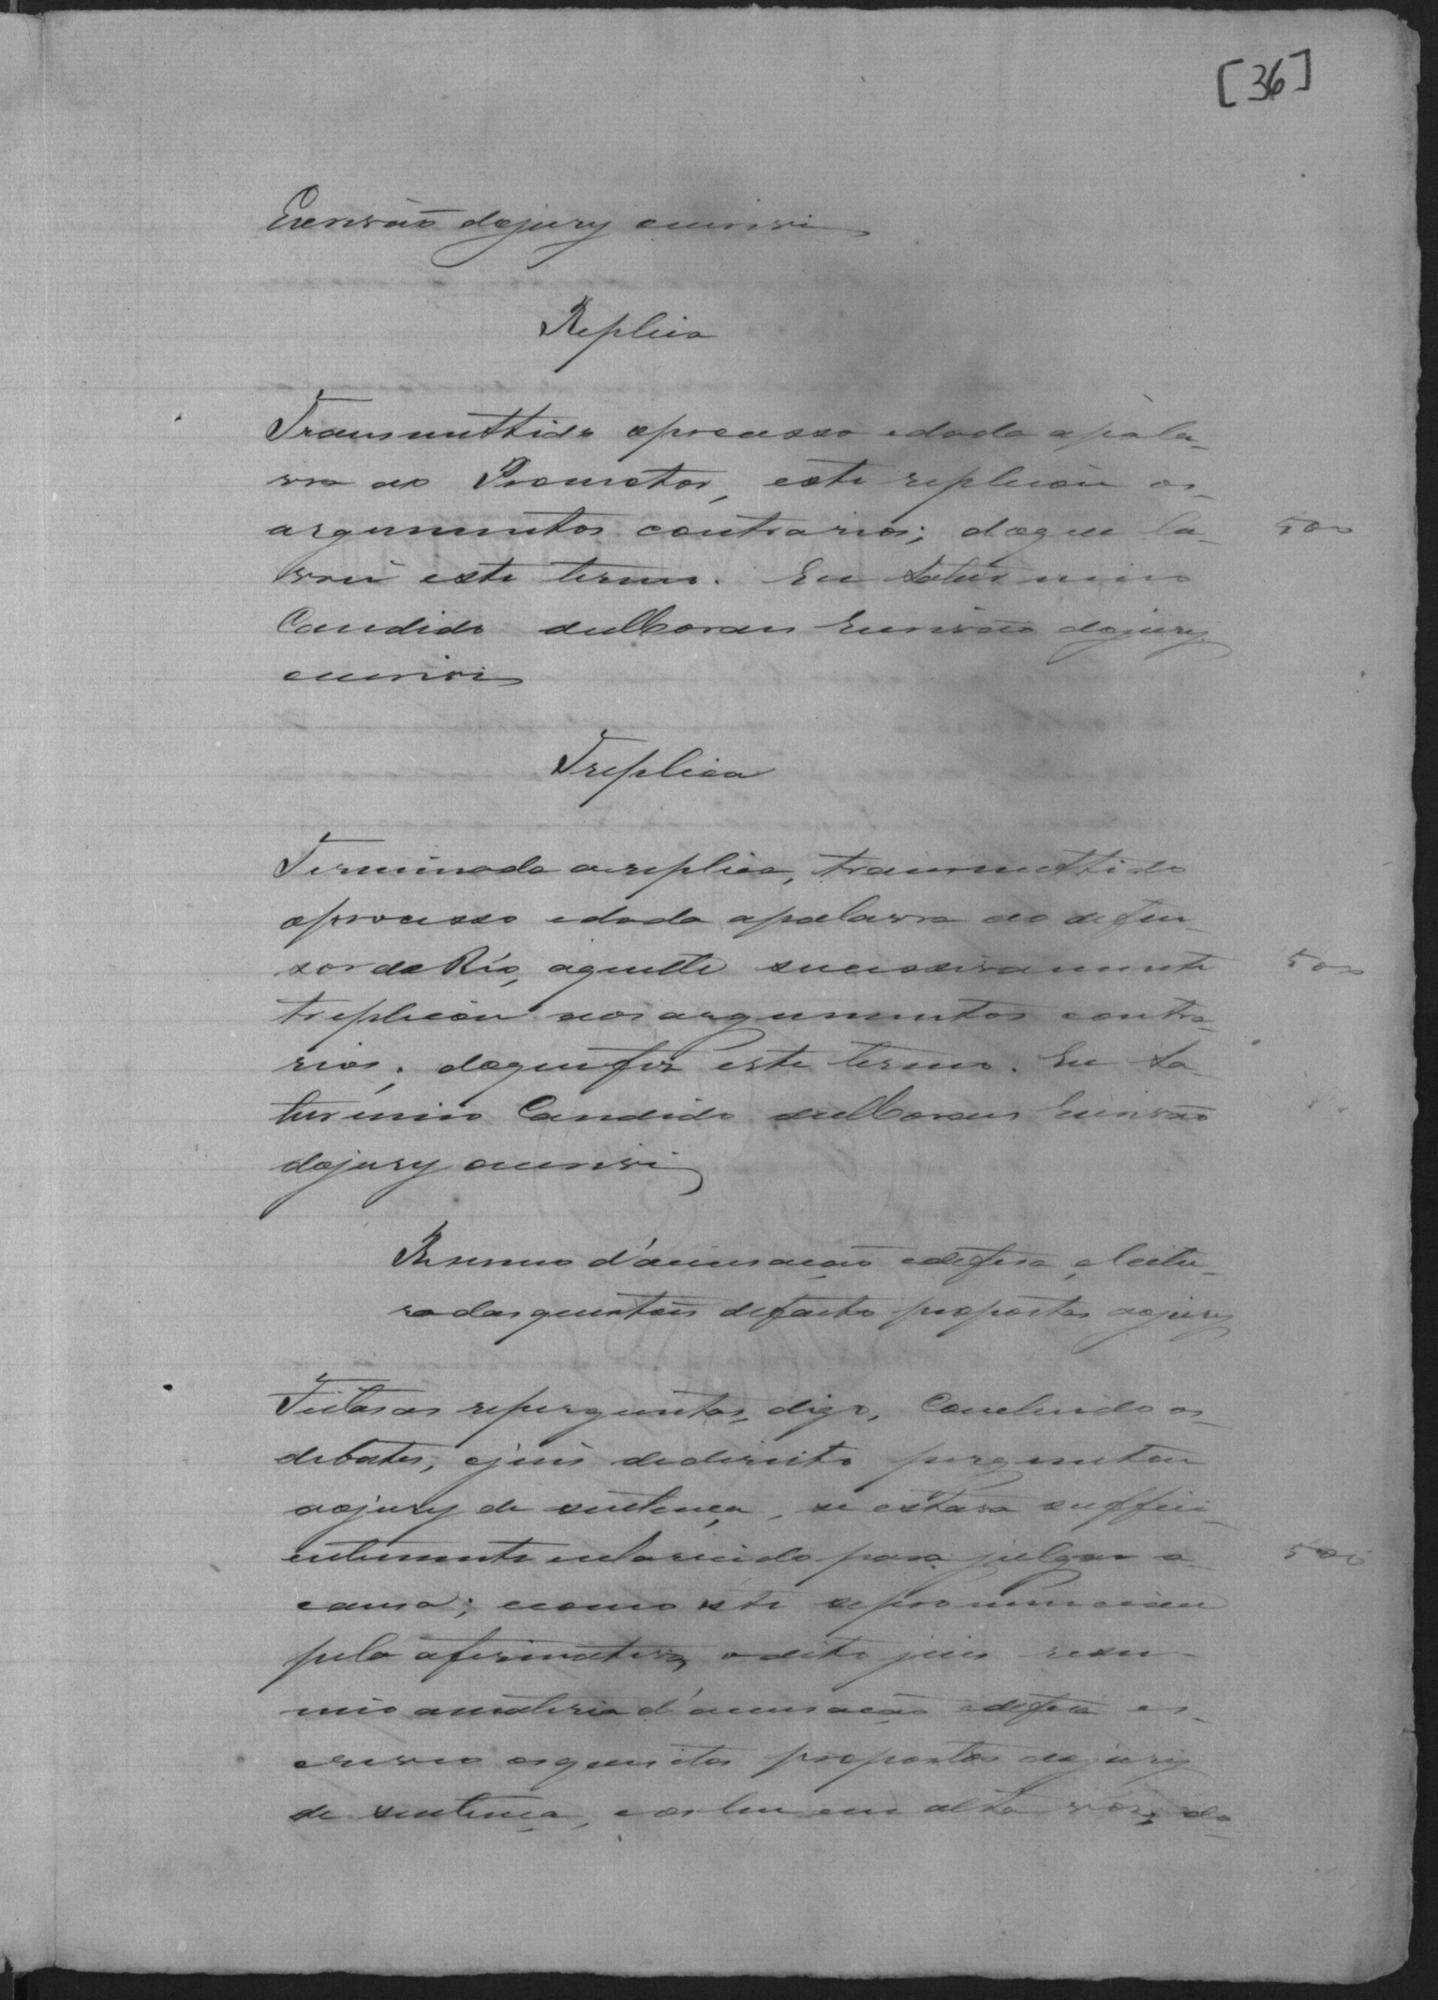 [36]
Escrivão dojury escrivi
Replica
Transmettido oprocesso edada apala-
vra ao Promotor, este replicou os
argumentos contrarios; doque la- 500
vrei este termo. Eu Saturnino
Candido de Moraes Escrivão dojury
escrivi
Treplica
Terminada areplica, transmettido
oprocesso edada apalavra ao defen-
sor do Réo, aquelle successivamente 500
treplicou aos argumentos contra-
rios; doque fiz este termo. Eu Sa-
turnino Candido de Moraes Escrivão
dojury escrivi
Resumo d'accusação edefesa, eleitu-
ra das questões defacto propostas aojury
Feitas as reperguntas, digo, Concluido os
debates, ojuis dedireito perguntou
aojury de sentença, se estava suffici-
entemente esclarecido para julgar a 500
causa; ecomo este sepronunciou
pela afirmativa, o dito juis resu-
mio amateria d'accusação edefesa es-
creveo osquesitos propostos aojury
de sentença, eosleu em alta vós; do-